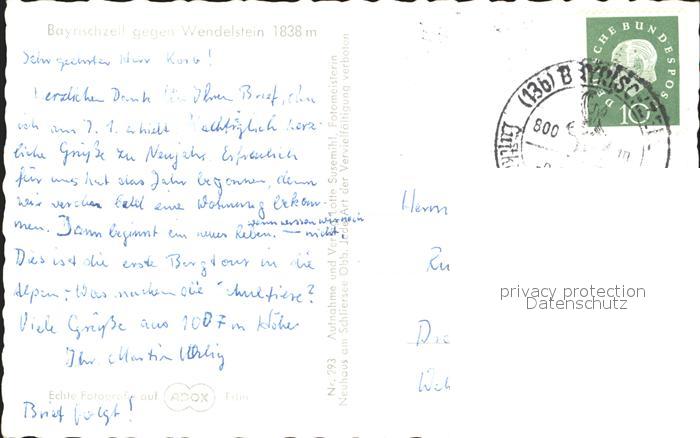 Bayrischzell gegen Wendelstein 1838 m
Sehr geehrter Herr Korb!
Herzlichen Dank für Ihren Brief, den
ich am 7.1. erhielt. Nachträglich herz-
liche Grüße zu Neujahr. Erfreulich
für uns hat das Jahr begonnen, denn
wir werden bald eine Wohnung bekom-
men. Dann beginnt ein neues Leben. — wann wissen wir noch
nicht
Dies ist die erste Bergtour in die
Alpen. Was machen die
Viele Grüße aus 1007 m Höhe
Ihr Martin
Echte Fotografie auf ADOX Film
Brief folgt!
Nr. 293 Aufnahme und Verlag Lotte Susemihl, Fotomeisterin
Neuhaus am Schliersee Obb. Jede Art der Vervielfältigung verboten
DEUTSCHE BUNDESPOST
10
(13b) BAYRISCHZELL
800
m
Luftkurort
Herrn
privacy protection
Datenschutz